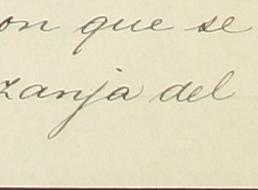 on que se
zanja del